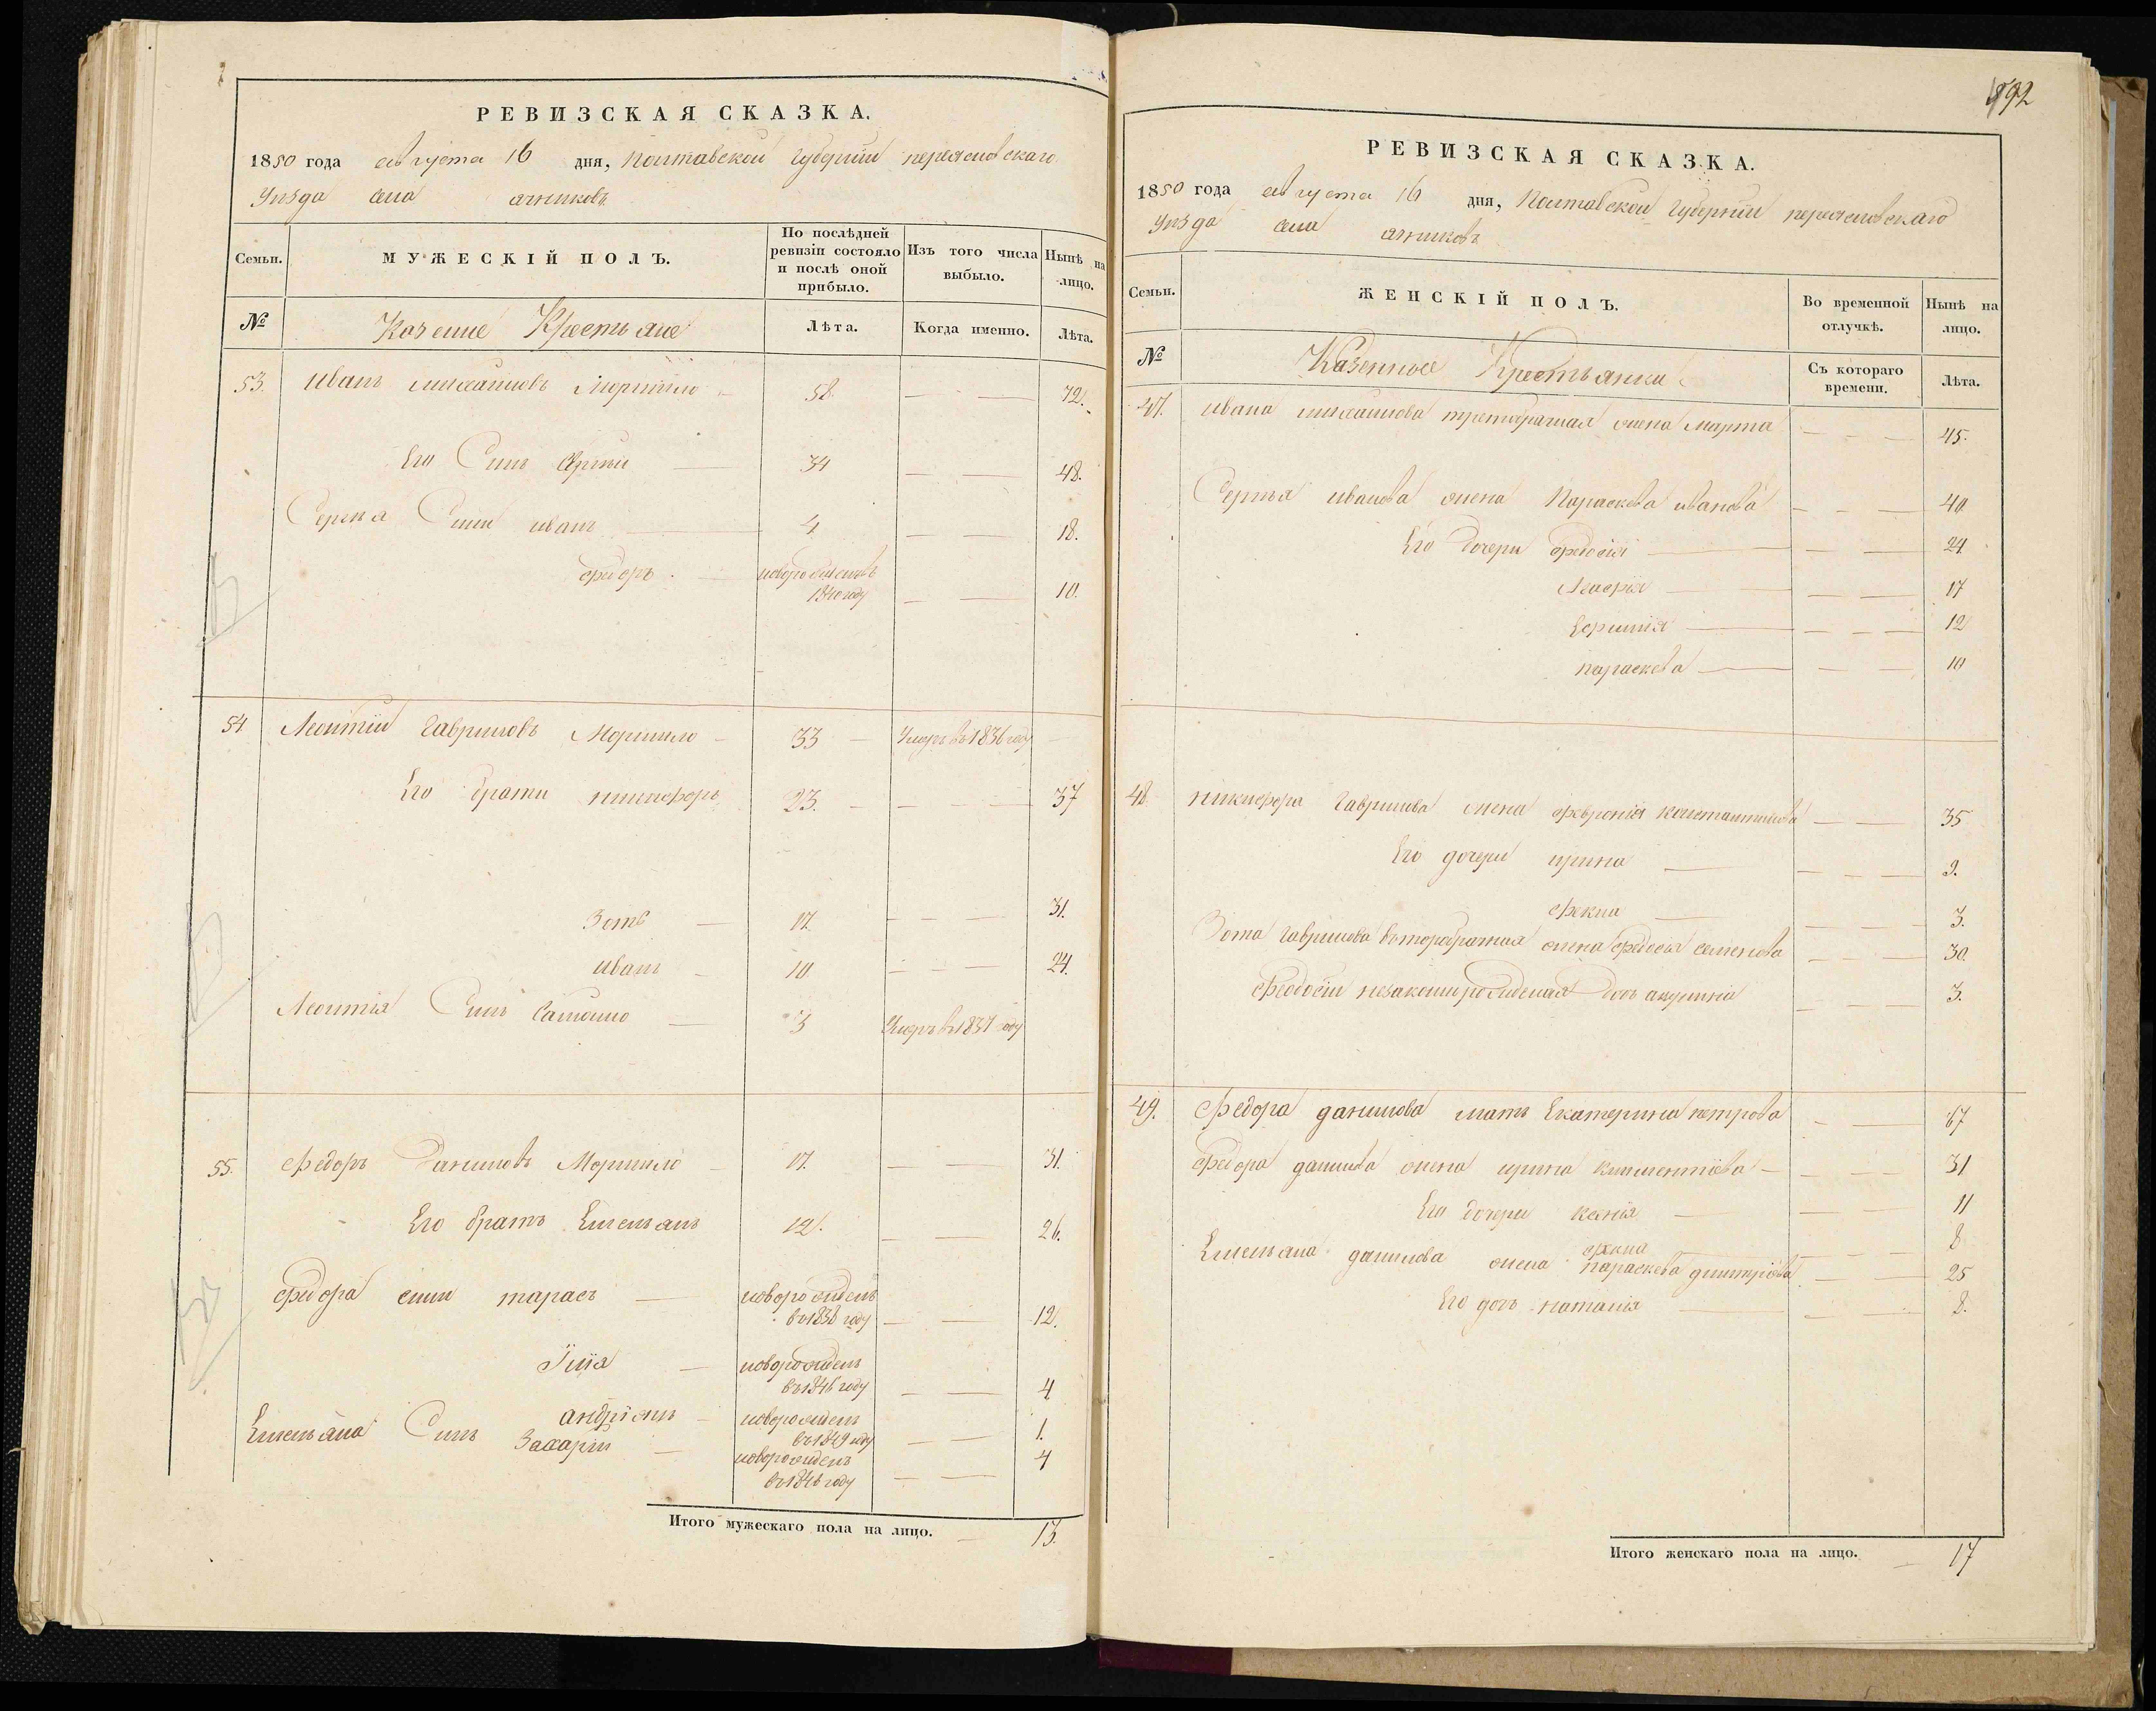 РЕВИЗСКАЯ СКАЗКА.
1850 года августа 16 дня, Полтавской губернии переясловскаго
Уѣзда села
МУЖЕСКІЙ ПОЛЪ.
Семьи.
По послѣдней ревизіи состояло и послѣ оной прибыло.
Изъ того числа выбыло.
Нынѣ на лицо.
№
Казенные Крестьяне
Лѣта.
Когда именно.
Лѣта.
53. Иванъ михайловъ 58. 72.
Его Сын 34 48.
Сергѣя Сыни иванъ 4 18.
федоръ новорожденъ 1840 году 10.
54 Леонтій Гавриловъ 33 Умеръ въ 1836 году
Его брати никифоръ 23. 37
Зотъ 17. 31.
иванъ 10 24.
Леонтія Сынъ Самойло 3 Умеръ въ 1837 году
55. Федоръ Даниловъ 17. 31.
Его братъ Емельянъ 12. 26.
Федора сыни тарасъ новорожденъ въ 1838 году 12.
Їлія новорожденъ въ 1846 году 4
андріянъ новорожденъ въ 1849 году 1.
Емельяна Сынъ Захарій новорожденъ въ 1846 году 4
Итого мужескаго пола на лицо. 13.
192
РЕВИЗСКАЯ СКАЗКА.
1850 года августа 16 дня, Полтавской Губерніи переясловскаго
Уѣзда села
Семьи.
ЖЕНСКІЙ ПОЛЪ.
Во временной отлучкѣ.
Нынѣ на лицо.
№
Казенные Крестьянки
Съ котораго времени.
Лѣта.
47. ивана михайлова третобрачная жена Марта 45.
Сергѣя иванова жена Параскева иванова 40
Его дочери федосія 24
17
12
параскева 10
48 никифора Гаврилова жена февронія константинова 35
Его дочери ирина 9.
Фекла 3.
Зота гаврилова второбрачная жена федосія семенова 30.
Феодосіи незаконнорожденая дочь акулина 3.
49. Федора данилова мать Екатерина петрова 67
Федора данилова жена ирина климентіева 31
Его дочери ксенія 11
фекла 8
Емельяна данилова жена параскева дмитріева 25
Его дочь наталія 8.
Итого женскаго пола на лицо. 17